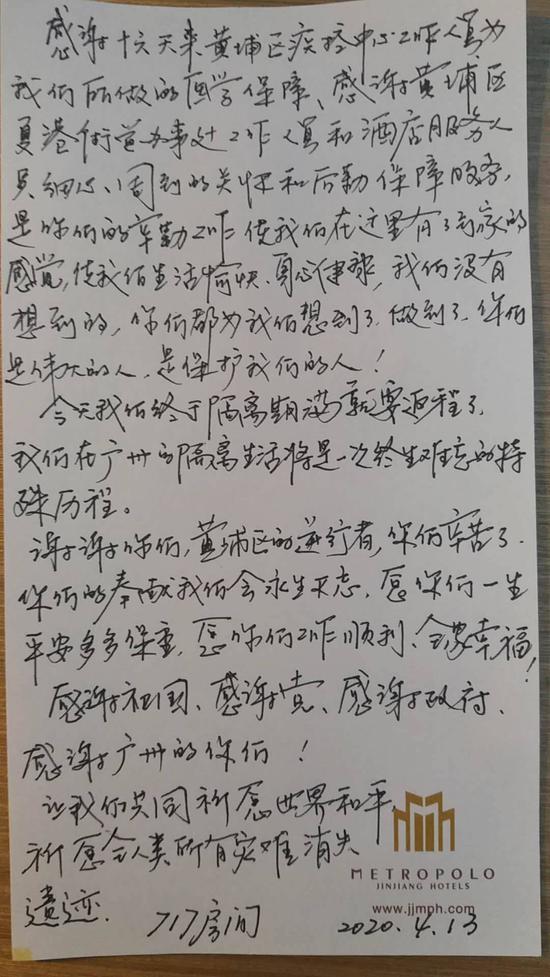 感谢十六天来黄埔区疾控中心工作人员为
我们所做的医学保障、感谢黄埔区
夏港街道办事处工作人员和酒店服务人
员细心、周到的关怀和后勤保障服务,
是你们的辛勤工作使我们在这里有了到家的
感觉,使我们生活愉快、身心健康,我们没有
想到的,你们都为我们想到了,做到了,你们
是伟大的人,是保护我们的人!
今天我们终于隔离期满就要返程了,
我们在广州的隔离生活将是一次终生难忘的特
殊历程。
谢谢你们,黄埔区的逆行者,你们辛苦了.
你们的奉献我们会永生不忘,愿你们一生
平安多多保重,愿你们工作顺利、全家幸福!
感谢祖国、感谢党、感谢政府、
感谢广州的你们!
让我们共同祈愿世界和平,
祈愿全人类所有灾难消失
遗迹.
717房间 2020.4.13
METROPOLO
JINJIANG HOTELS
www.jjmph.com